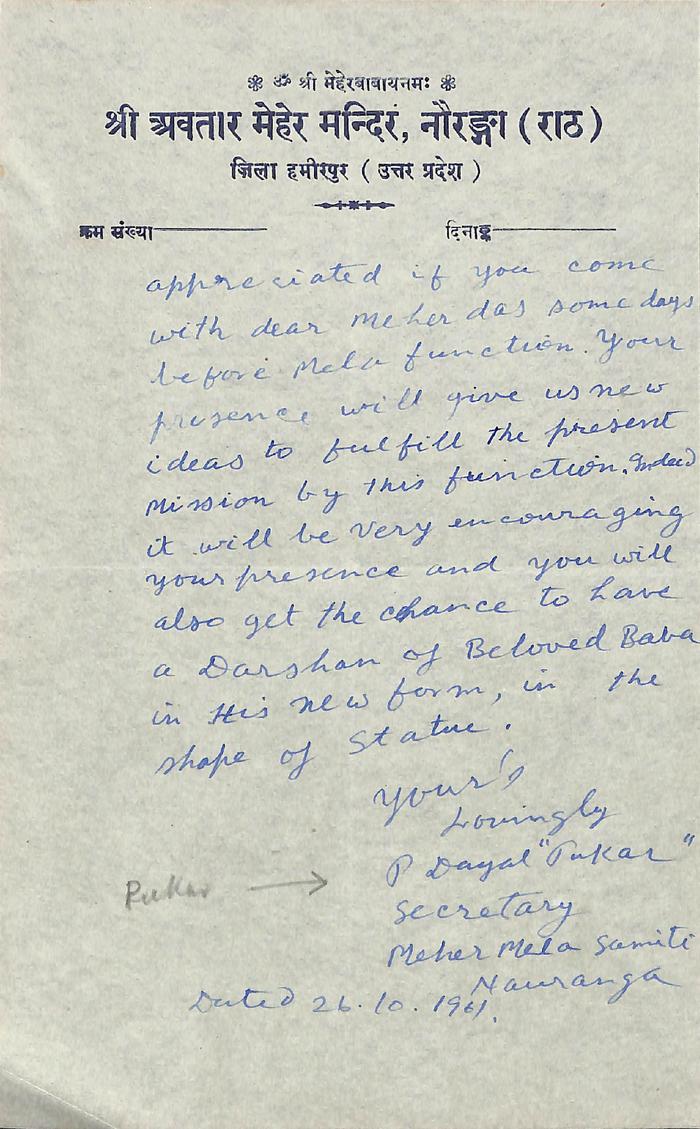 ॐ श्री मेहेरबाबायनमः
श्री अवतार मेहेर मन्दिर, नौरङ्गा (राठ)
जिला हमीरपुर ( उत्तर प्रदेश )
क्रम संख्या
दिनाङ्क
appreciated if you come
with dear Meher das some days
before Mela function. Your
presence will give us new
ideas to fulfill the present
Mission by this function. Indeed
it will be very encouraging
your presence and you will
also get the chance to have
a Darshan of Beloved Baba
in His new form, in the
shape of Statue.
Your's
Lovingly
P Dayal "Pukar"
Pukar →
Secretary
Meher Mela Samiti
Nauranga
Dated 26.10.1961.